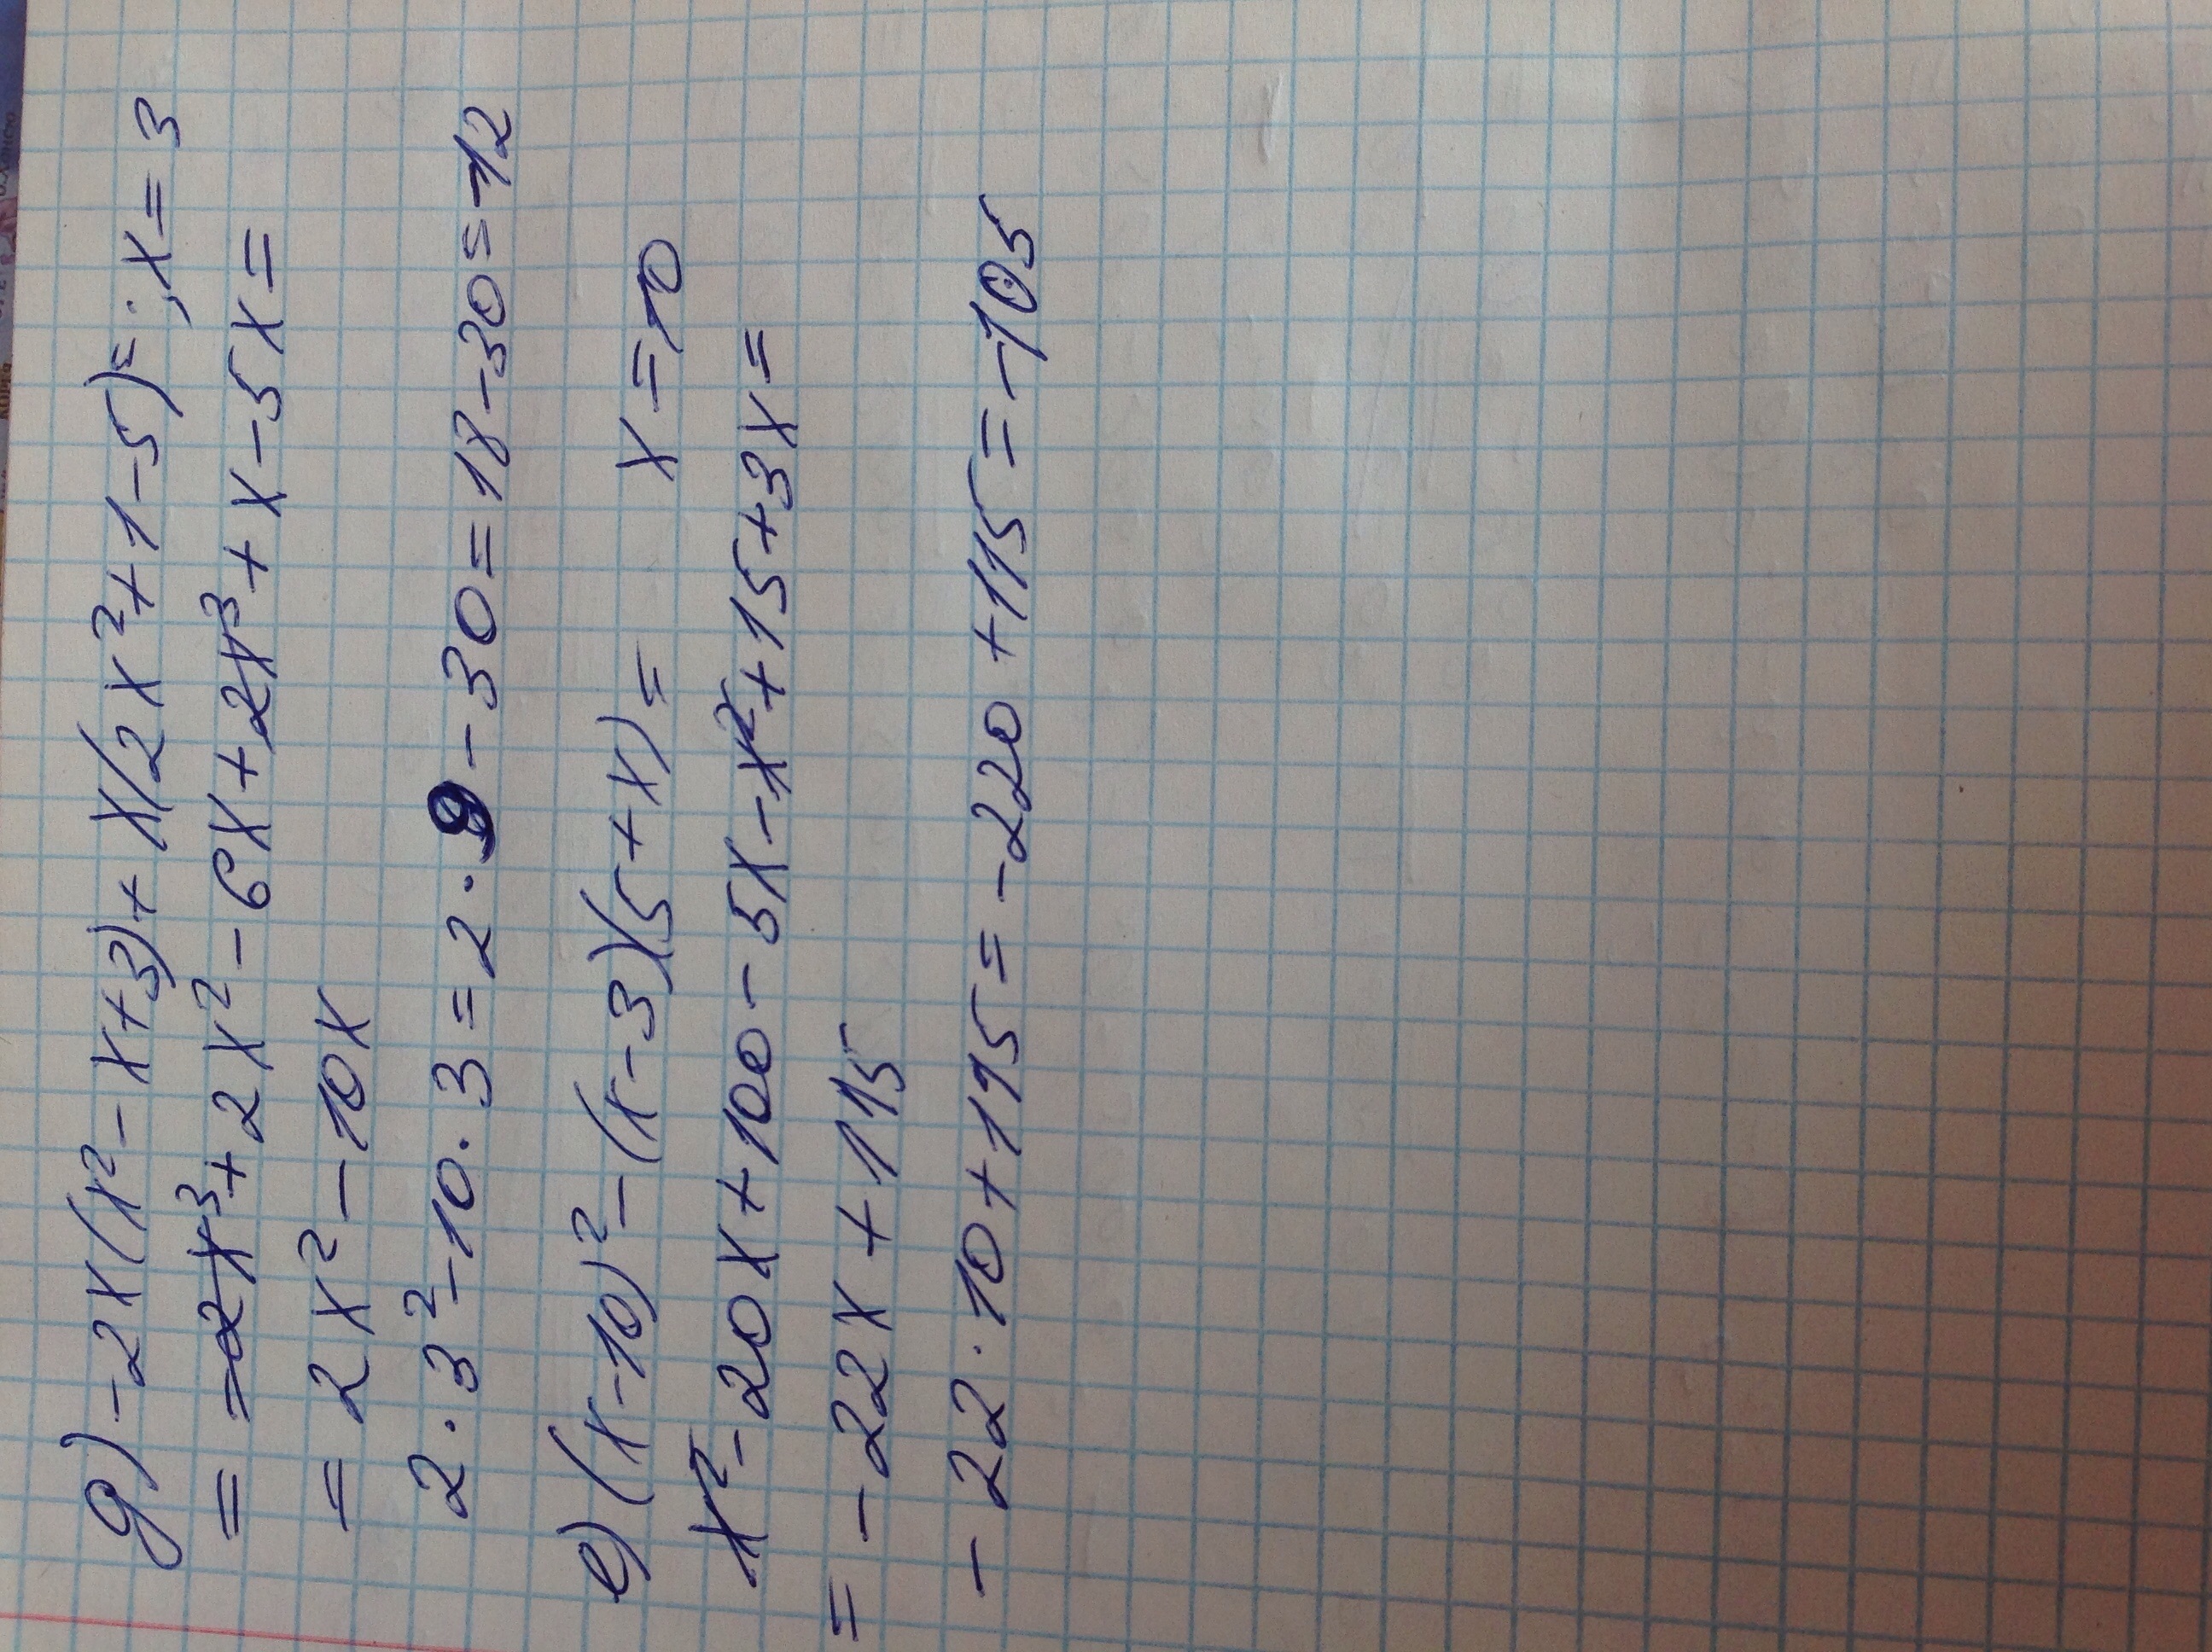 д) -2x(x² - x+3)+ x(2x²+1-5)=; x=3
= -2x³+2x²-6x+2x³+x-5x=
= 2x²-10x
2·3²-10·3=2·9-30=18-30=-12
е) (x-10)²-(x-3)(5+x)= x=10
x²-20x+100-5x-x²+15+3x=
= -22x+115
-22·10+115=-220+115=-105